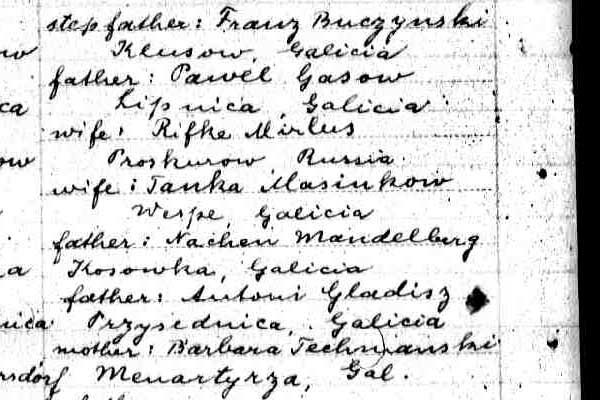 step father: Franz Buczynski
ow Klusow, Galicia
father: Pawel Gasow
ca Lipnica, Galicia
wife: Rifke Mirlus
ow Proskurow, Russia.
wife: Tanka Masinkow
Wespe, Galicia
father: Nachen Mandelberg
a Kosowka, Galicia
father: Antoni Gladisz
nica Przysednica, Galicia
mother: Barbara Techmanski
rsdorf Menartyrza, Gal.